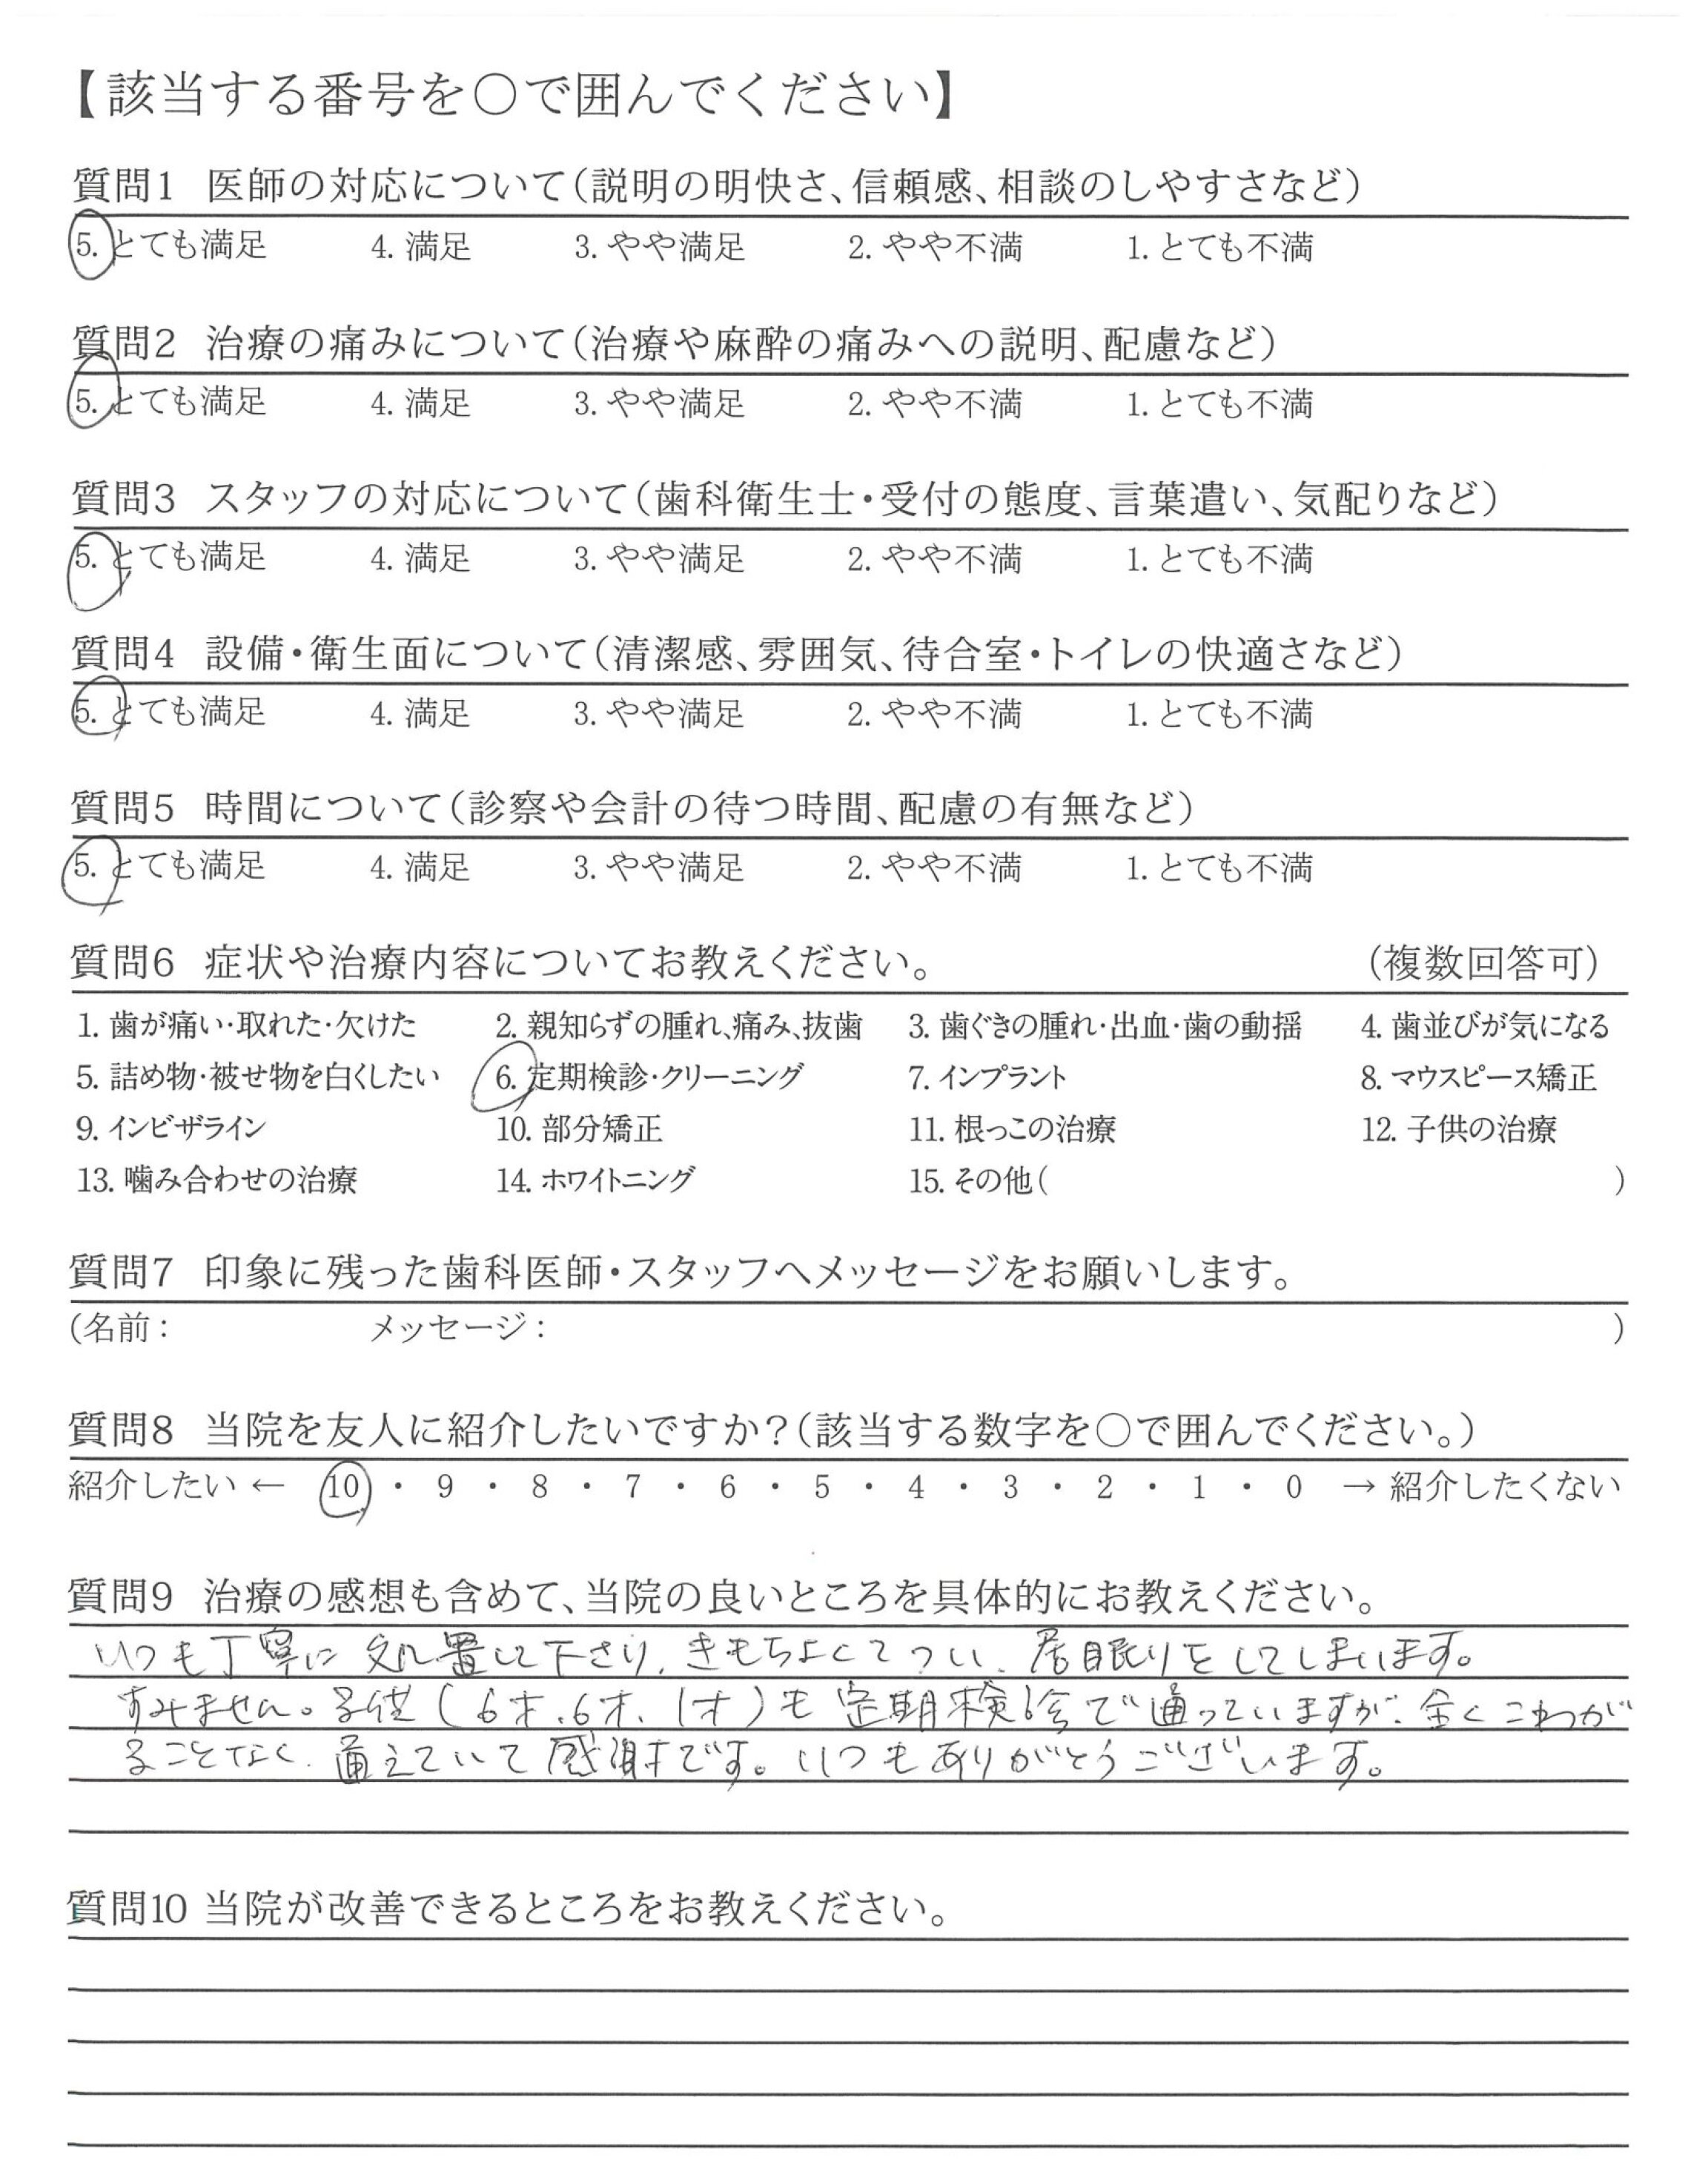 【該当する番号を○で囲んでください】
質問1 医師の対応について(説明の明快さ、信頼感、相談のしやすさなど)
5. とても満足 4. 満足 3. やや満足 2. やや不満 1. とても不満
質問2 治療の痛みについて(治療や麻酔の痛みへの説明、配慮など)
5. とても満足 4. 満足 3. やや満足 2. やや不満 1. とても不満
質問3 スタッフの対応について(歯科衛生士・受付の態度、言葉遣い、気配りなど)
5. とても満足 4. 満足 3. やや満足 2. やや不満 1. とても不満
質問4 設備・衛生面について(清潔感、雰囲気、待合室・トイレの快適さなど)
5. とても満足 4. 満足 3. やや満足 2. やや不満 1. とても不満
質問5 時間について(診察や会計の待つ時間、配慮の有無など)
5. とても満足 4. 満足 3. やや満足 2. やや不満 1. とても不満
質問6 症状や治療内容についてお教えください。 (複数回答可)
1. 歯が痛い・取れた・欠けた 2. 親知らずの腫れ、痛み、抜歯 3. 歯ぐきの腫れ・出血・歯の動揺 4. 歯並びが気になる
5. 詰め物・被せ物を白くしたい 6. 定期検診・クリーニング 7. インプラント 8. マウスピース矯正
9. インビザライン 10. 部分矯正 11. 根っこの治療 12. 子供の治療
13. 噛み合わせの治療 14. ホワイトニング 15. その他( )
質問7 印象に残った歯科医師・スタッフへメッセージをお願いします。
(名前: メッセージ: )
質問8 当院を友人に紹介したいですか?(該当する数字を○で囲んでください。)
紹介したい ← 10 ・ 9 ・ 8 ・ 7 ・ 6 ・ 5 ・ 4 ・ 3 ・ 2 ・ 1 ・ 0 → 紹介したくない
質問9 治療の感想も含めて、当院の良いところを具体的にお教えください。
いつも丁寧に処置して下さり、きもちよくてつい、居眠りをしてしまいます。
すみません。子供(6才、6才、1才)も定期検診で通っていますが、全くこわが
ることなく、通えていて感謝です。いつもありがとうございます。
質問10 当院が改善できるところをお教えください。